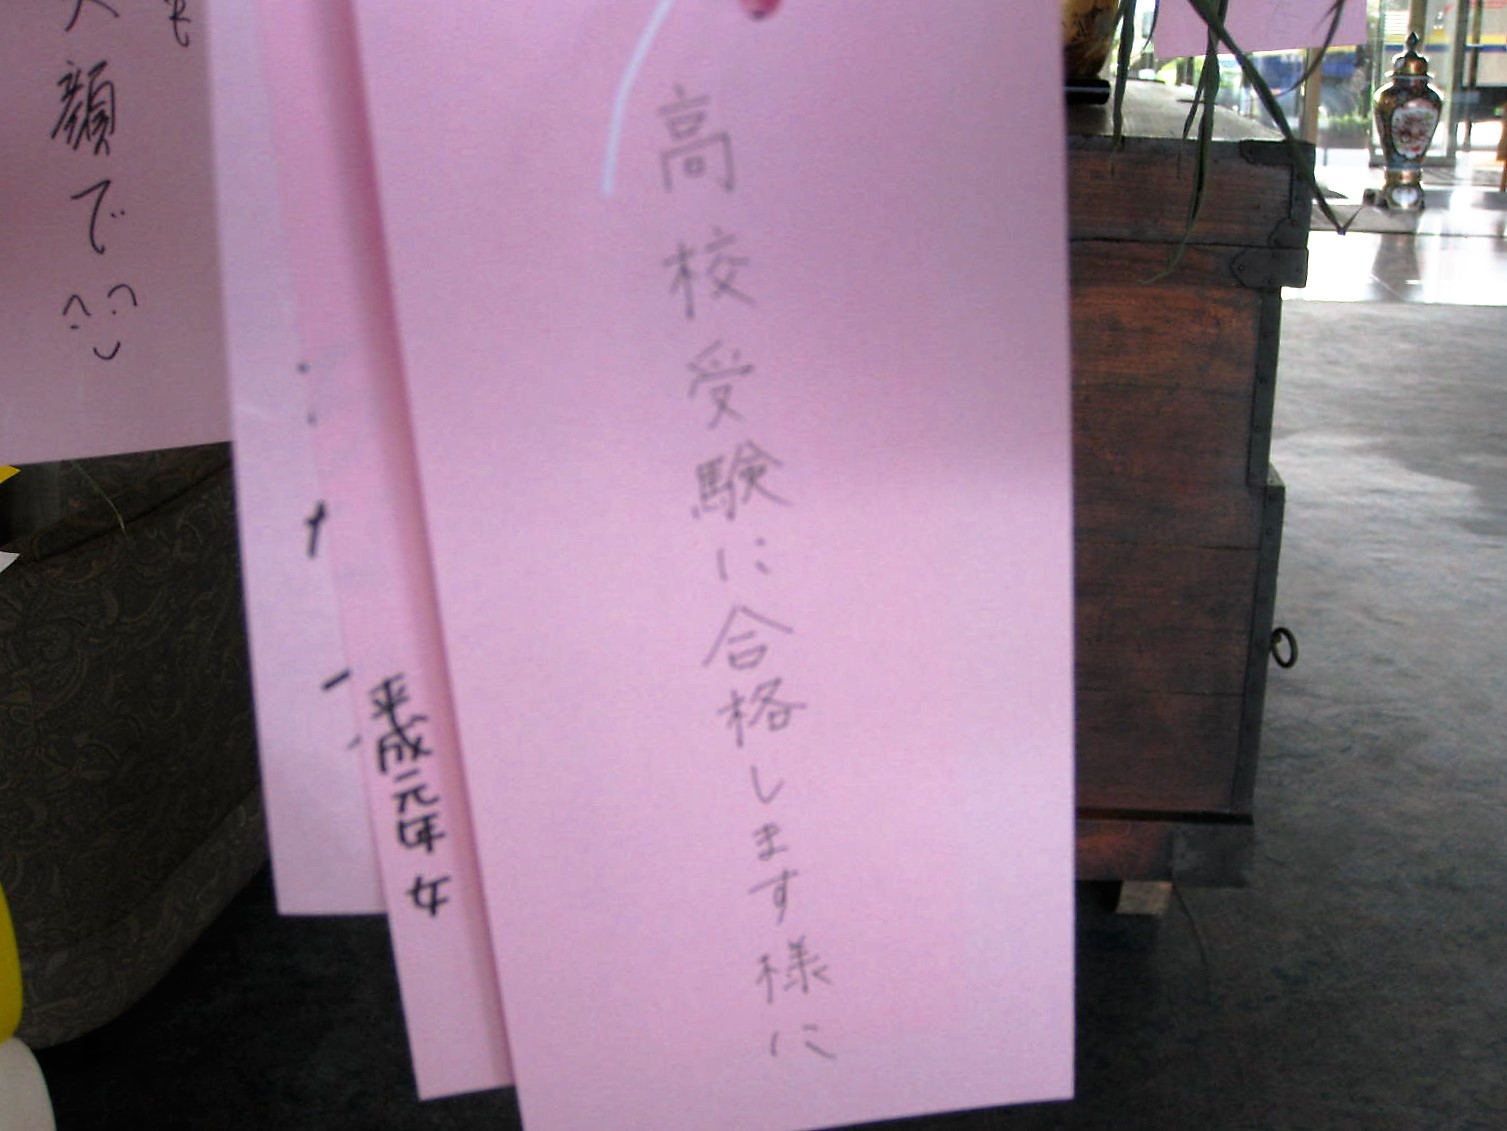 高校受験に合格します様に
平成元年 女
顔で